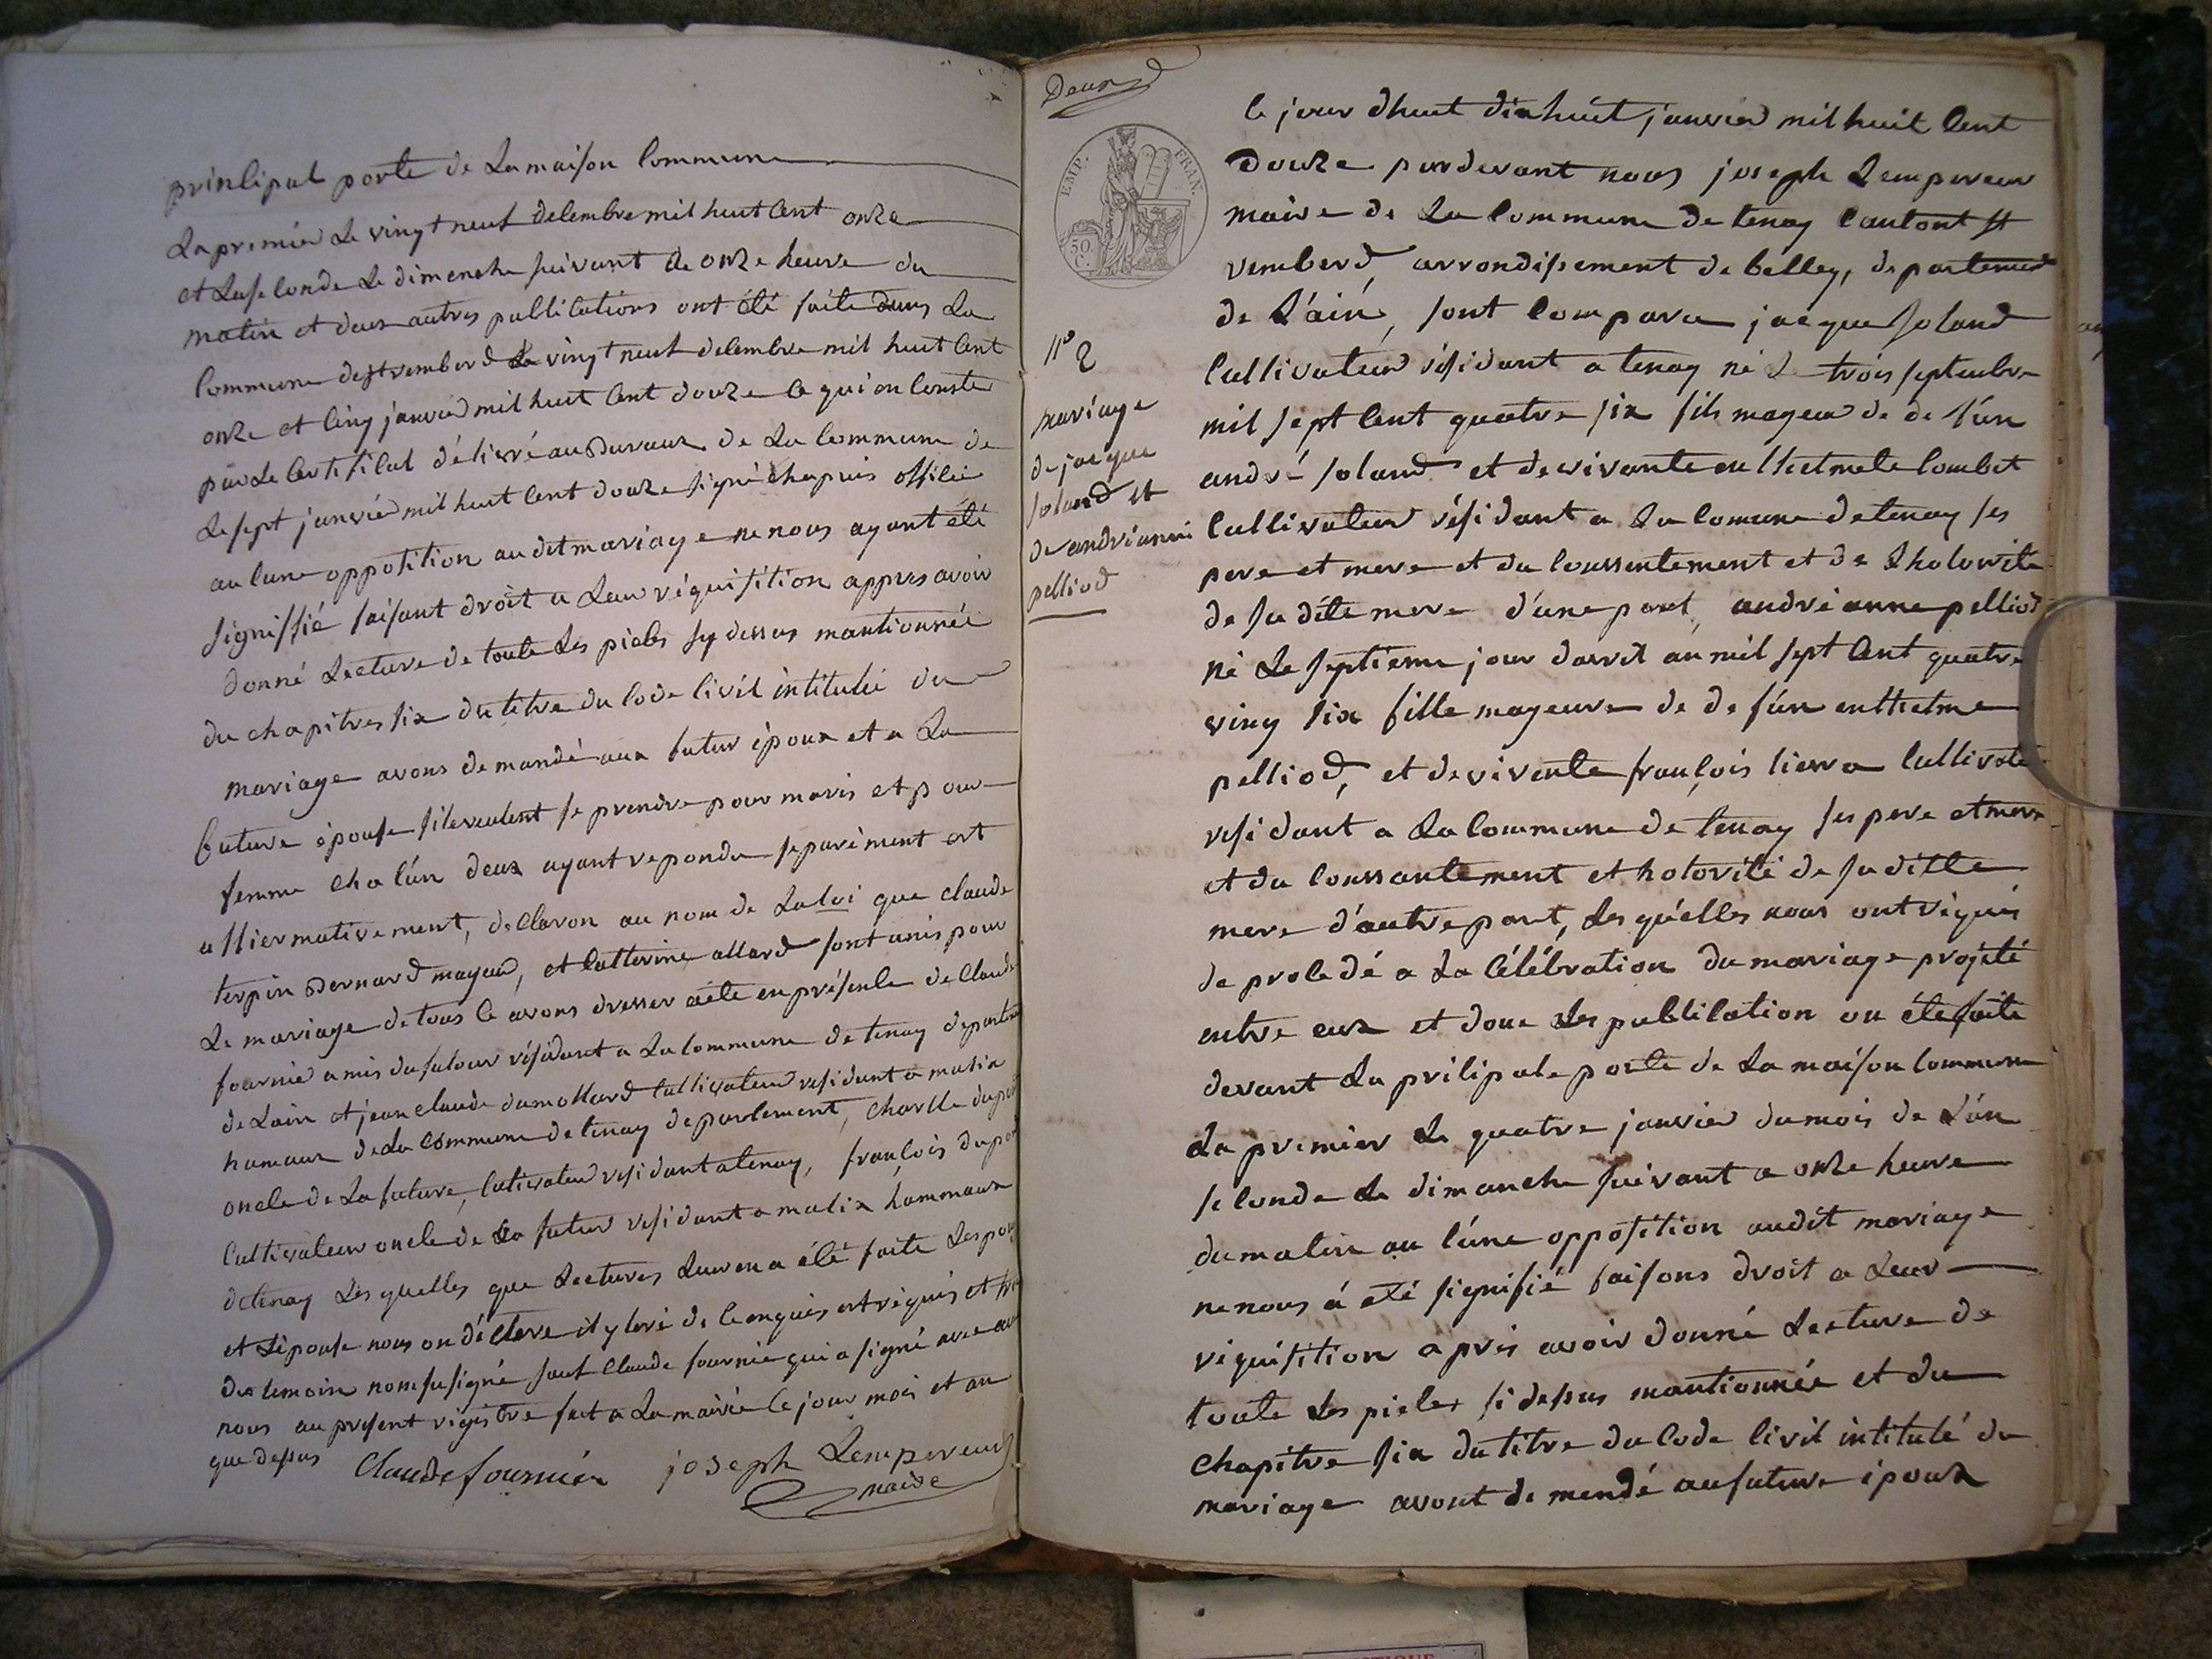 principal porte de La maison Commune
La premier Le vingt neuf decembre mil huit Cent onze
et La seconde Le dimenche suivant de onze heure du
matin et deux autres publications ont été faite dans La
Commune de st rembord Le vingt neuf decembre mil huit Cent
onze et cinq janvier mil huit Cent douze Ce qui en Conste
par Le Certificat délivré au Buraux de La Commune de
Le sept janvier mil huit Cent douze signé Chapuis officié
aucune oppotition audit mariage ne nous ayant été
signiffié faisant droit a Leur réquisition appres avoir
donné Lecture de toute Les pieces sy dessus mantionnée
du chapitres six du titre du Code Civil intitulée du
mariage avons demandé aux futur époux et a La
future épouse sile veulent se prendre pour maris et pour
femme Chacún deux ayant repondu separément ert
affiermativement, declaron au nom de La loi que Claude
terpin Bernard mayeur, et Catterine allard sont unis pour
Le mariage de tous Ce avons dresser acte en présence de Claude
fournié amis du futour résidant a La Commune de tenay departe
de Lain et jean Claude dumollard Cultivateur residant a malix
hameaux de La Commune de tenay departement, Charlle dupor
oncle de La future, Cultivateur residant a tenay, françois dupor
Cultivateur oncle de La futur residant a malix hammaux
de tenay Les quelles que Lectures Leur en a été faite Les pou
et L'épouse nous on déclare
des temoin nom su signé sauf Claude fournié qui a signé avec
nous au present registre fait a La mairie Ce jour mois et an
que dessus
Claude fournier joseph Lempereur
maire
Deux
EMP. FRAN.
50 C.
n° 2
mariage
de jacque
soland et
de andrianne
pelliod
Ce jour dhuit dix huit janvier mil huit Cent
Douze pardevant nous joseph Lempereur
maire de La Commune de tenay Cantont st
remberd, arrondissement de belley, departemend
de L'ain, sont Comparu jacque soland
Cultivateur résidant a tenay né Le trois septembre
mil sept Cent quatre six fils mageur de de fún
andré soland et de vivante enthelmete Combet
Cultivateur résidant a La Comune de tenay ses
pere et mere et du Conssentement et de Lhotorité
de sa dite mere d'une part, andrianne pelliod
né Le septieme jour davril an mil sept Cent quatre
ving six fille mageure de de fún enthelme
pelliod, et de vivente françois Cierra Cultivate
residant a La Commune de tenay ses pere et mere
et du Conssantement et hotorité de sa ditte
mere d'autre part, Les quélles nous ont réquis
de procedé a La Célébration du mariage projété
entre eux et donc Les publication on été faite
devant La pricipale porte de La maison Commune
La premier Le quatre janvier du mois de L'ún
seconde Le dimanche suivant a onze heure
du matin au Cúne opposition audit mariage
ne nous á été signifié faisons droit a Leur
réquisition aprés avoir donné Lecture de
toute Les pieces si dessus mantionnée et du
Chapitre six du titre du Code Civil intitulé du
mariage avont demendé au future époux